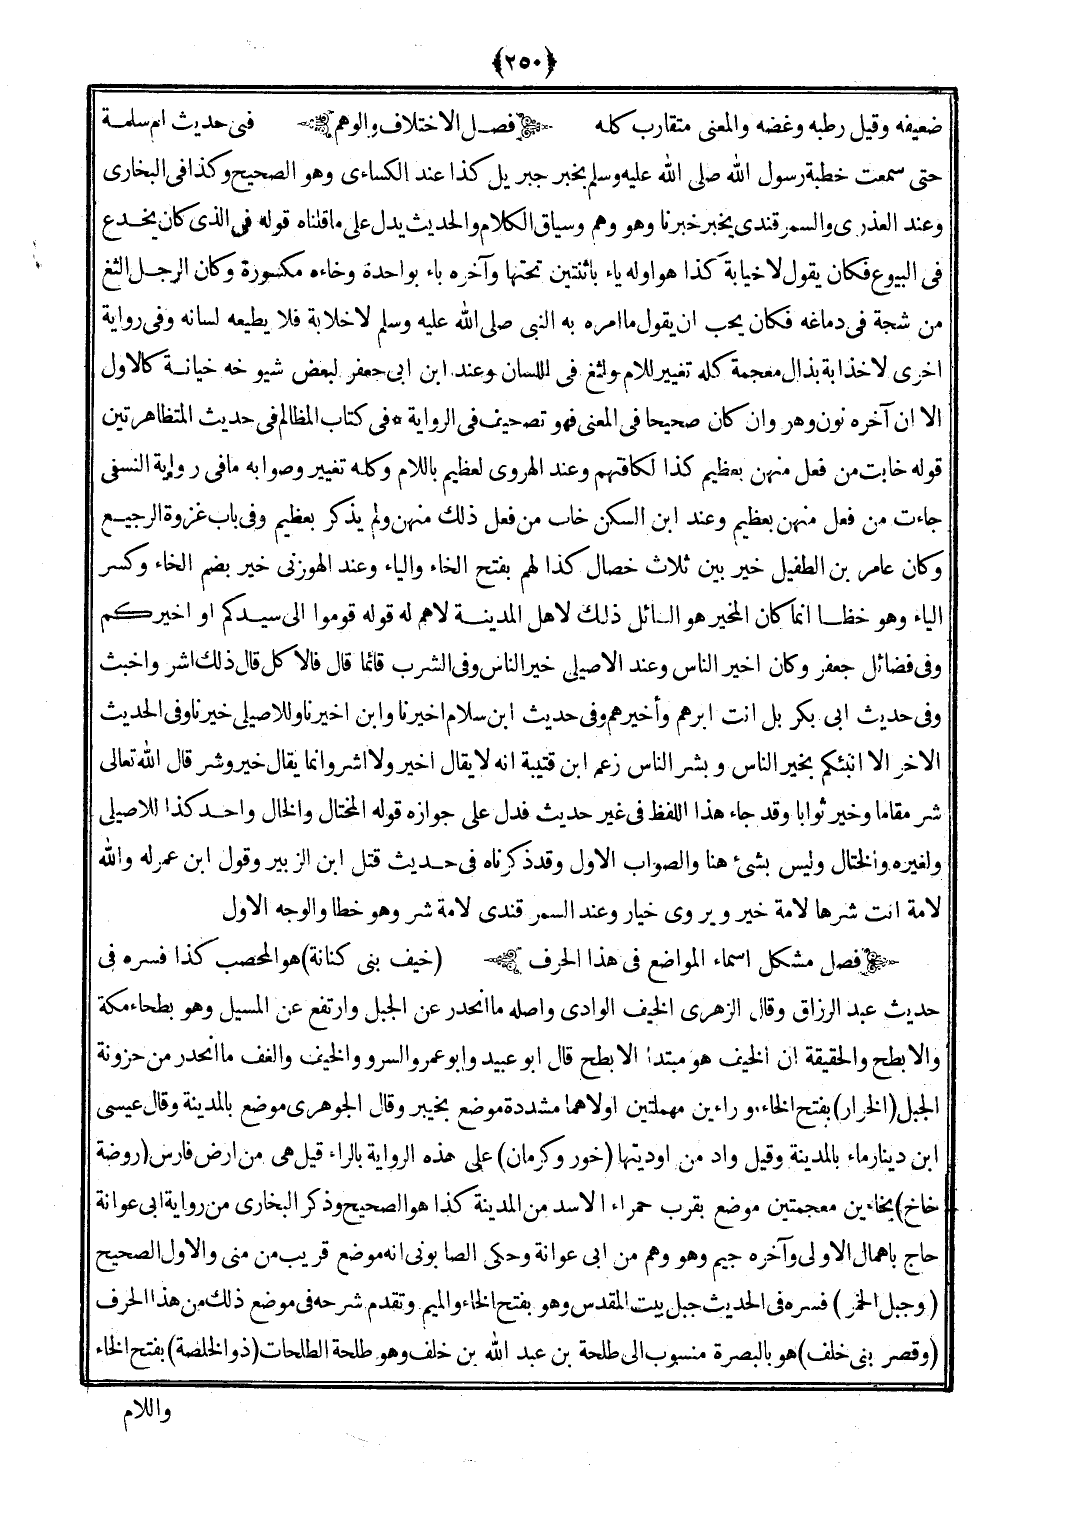 ﴿٢٥٠﴾
ضعيفه وقيل رطبه وغضه والمعنى متقارب كله فصل الاختلاف والوهم فى حديث ام سلمة
حتى سمعت خطبة رسول الله صلى الله عليه وسلم بخبر جبريل كذا عند الكساءى وهو الصحيح وكذا فى البخارى
وعند العذرى والسمرقندى يخبر خبرنا وهو وهم وسياق الكلام والحديث يدل على ما قلناه قوله فى الذى كان يخدع
فى البيوع فكان يقول لا خيابة كذا هو اوله ياء باثنتين تحتها وآخره باء بواحدة وخاءه مكسورة وكان الرجل الثغ
من شجة فى دماغه فكان يحب ان يقول ما امره به النبى صلى الله عليه وسلم لا خلابة فلا يطيعه لسانه وفى رواية
اخرى لا خذابة بذال معجمة كله تغيير للام ولثغ فى اللسان وعند ابن ابى جعفر لبعض شيو خه خيانة كالاول
الا ان آخره نون وهر وان كان صحيحا فى المعنى فهو تصحيف فى الرواية * فى كتاب المظالم فى حديث المتظاهرتين
قوله خابت من فعل منهن بعظيم كذا لكافتهم وعند الهروى لعظيم باللام وكله تغيير وصوابه مافى رواية النسفى
جاءت من فعل منهن بعظيم وعند ابن السكن خاب من فعل ذلك منهن ولم يذكر بعظيم وفى باب غزوة الرجيع
وكان عامر بن الطفيل خير بين ثلاث خصال كذا لهم بفتح الخاء والياء وعند الهوزنى خير بضم الخاء وكسر
الياء وهو خطا انما كان المخير هو السائل ذلك لاهل المدينة لاهم له قوله قوموا الى سيدكم او اخيركم
وفى فضائل جعفر وكان اخير الناس وعند الاصيلى خير الناس وفى الشرب قائما قال فالاكل قال ذلك اشر واخبث
وفى حديث ابى بكر بل انت ابرهم وأخيرهم وفى حديث ابن سلام اخيرنا وابن اخيرنا وللاصيلى خيرنا وفى الحديث
الاخر الا انبئكم بخير الناس وبشر الناس زعم ابن قتيبة انه لا يقال اخير ولا اشر وانما يقال خير وشر قال الله تعالى
شر مقاما وخير ثوابا وقد جاء هذا اللفظ فى غير حديث فدل على جوازه قوله المختال والخال واحد كذا للاصيلى
ولغيره والختال وليس بشئ هنا والصواب الاول وقد ذكرناه فى حديث قتل ابن الزبير وقول ابن عمر له والله
لامة انت شرها لامة خير ويروى خيار وعند السمر قندى لامة شر وهو خطا والوجه الاول
فصل مشكل اسماء المواضع فى هذا الحرف (خيف بنى كنانة) هو المحصب كذا فسره فى
حديث عبد الرزاق وقال الزهرى الخيف الوادى واصله ما انحدر عن الجبل وارتفع عن المسيل وهو بطحاء مكة
والابطح والحقيقة ان الخيف هو مبتدا الابطح قال ابو عبيد وابو عمر والسرو والخيف والغف ما انحدر من حزونة
الجبل (الخرار) بفتح الخاء وراءين مهملتين اولاهما مشددة موضع بخيبر وقال الجوهرى موضع بالمدينة وقال عيسى
ابن دينار ماء بالمدينة وقيل واد من اوديتها (خور وكرمان) على هذه الرواية بالراء قيل هى من ارض فارس (روضة
خاخ) بخاءين معجمتين موضع بقرب حمراء الاسد من المدينة كذا هو الصحيح وذكر البخارى من رواية ابى عوانة
حاج باهمال الاولى وآخره جيم وهو وهم من ابى عوانة وحكى الصابونى انه موضع قريب من منى والاول الصحيح
(وجبل الخمر) فسره فى الحديث جبل بيت المقدس وهو بفتح الخاء والميم وتقدم شرحه فى موضع ذلك من هذا الحرف
(وقصر بنى خلف) هو بالبصرة منسوب الى طلحة بن عبد الله بن خلف وهو طلحة الطلحات (ذو الخلصة) بفتح الخاء
واللام